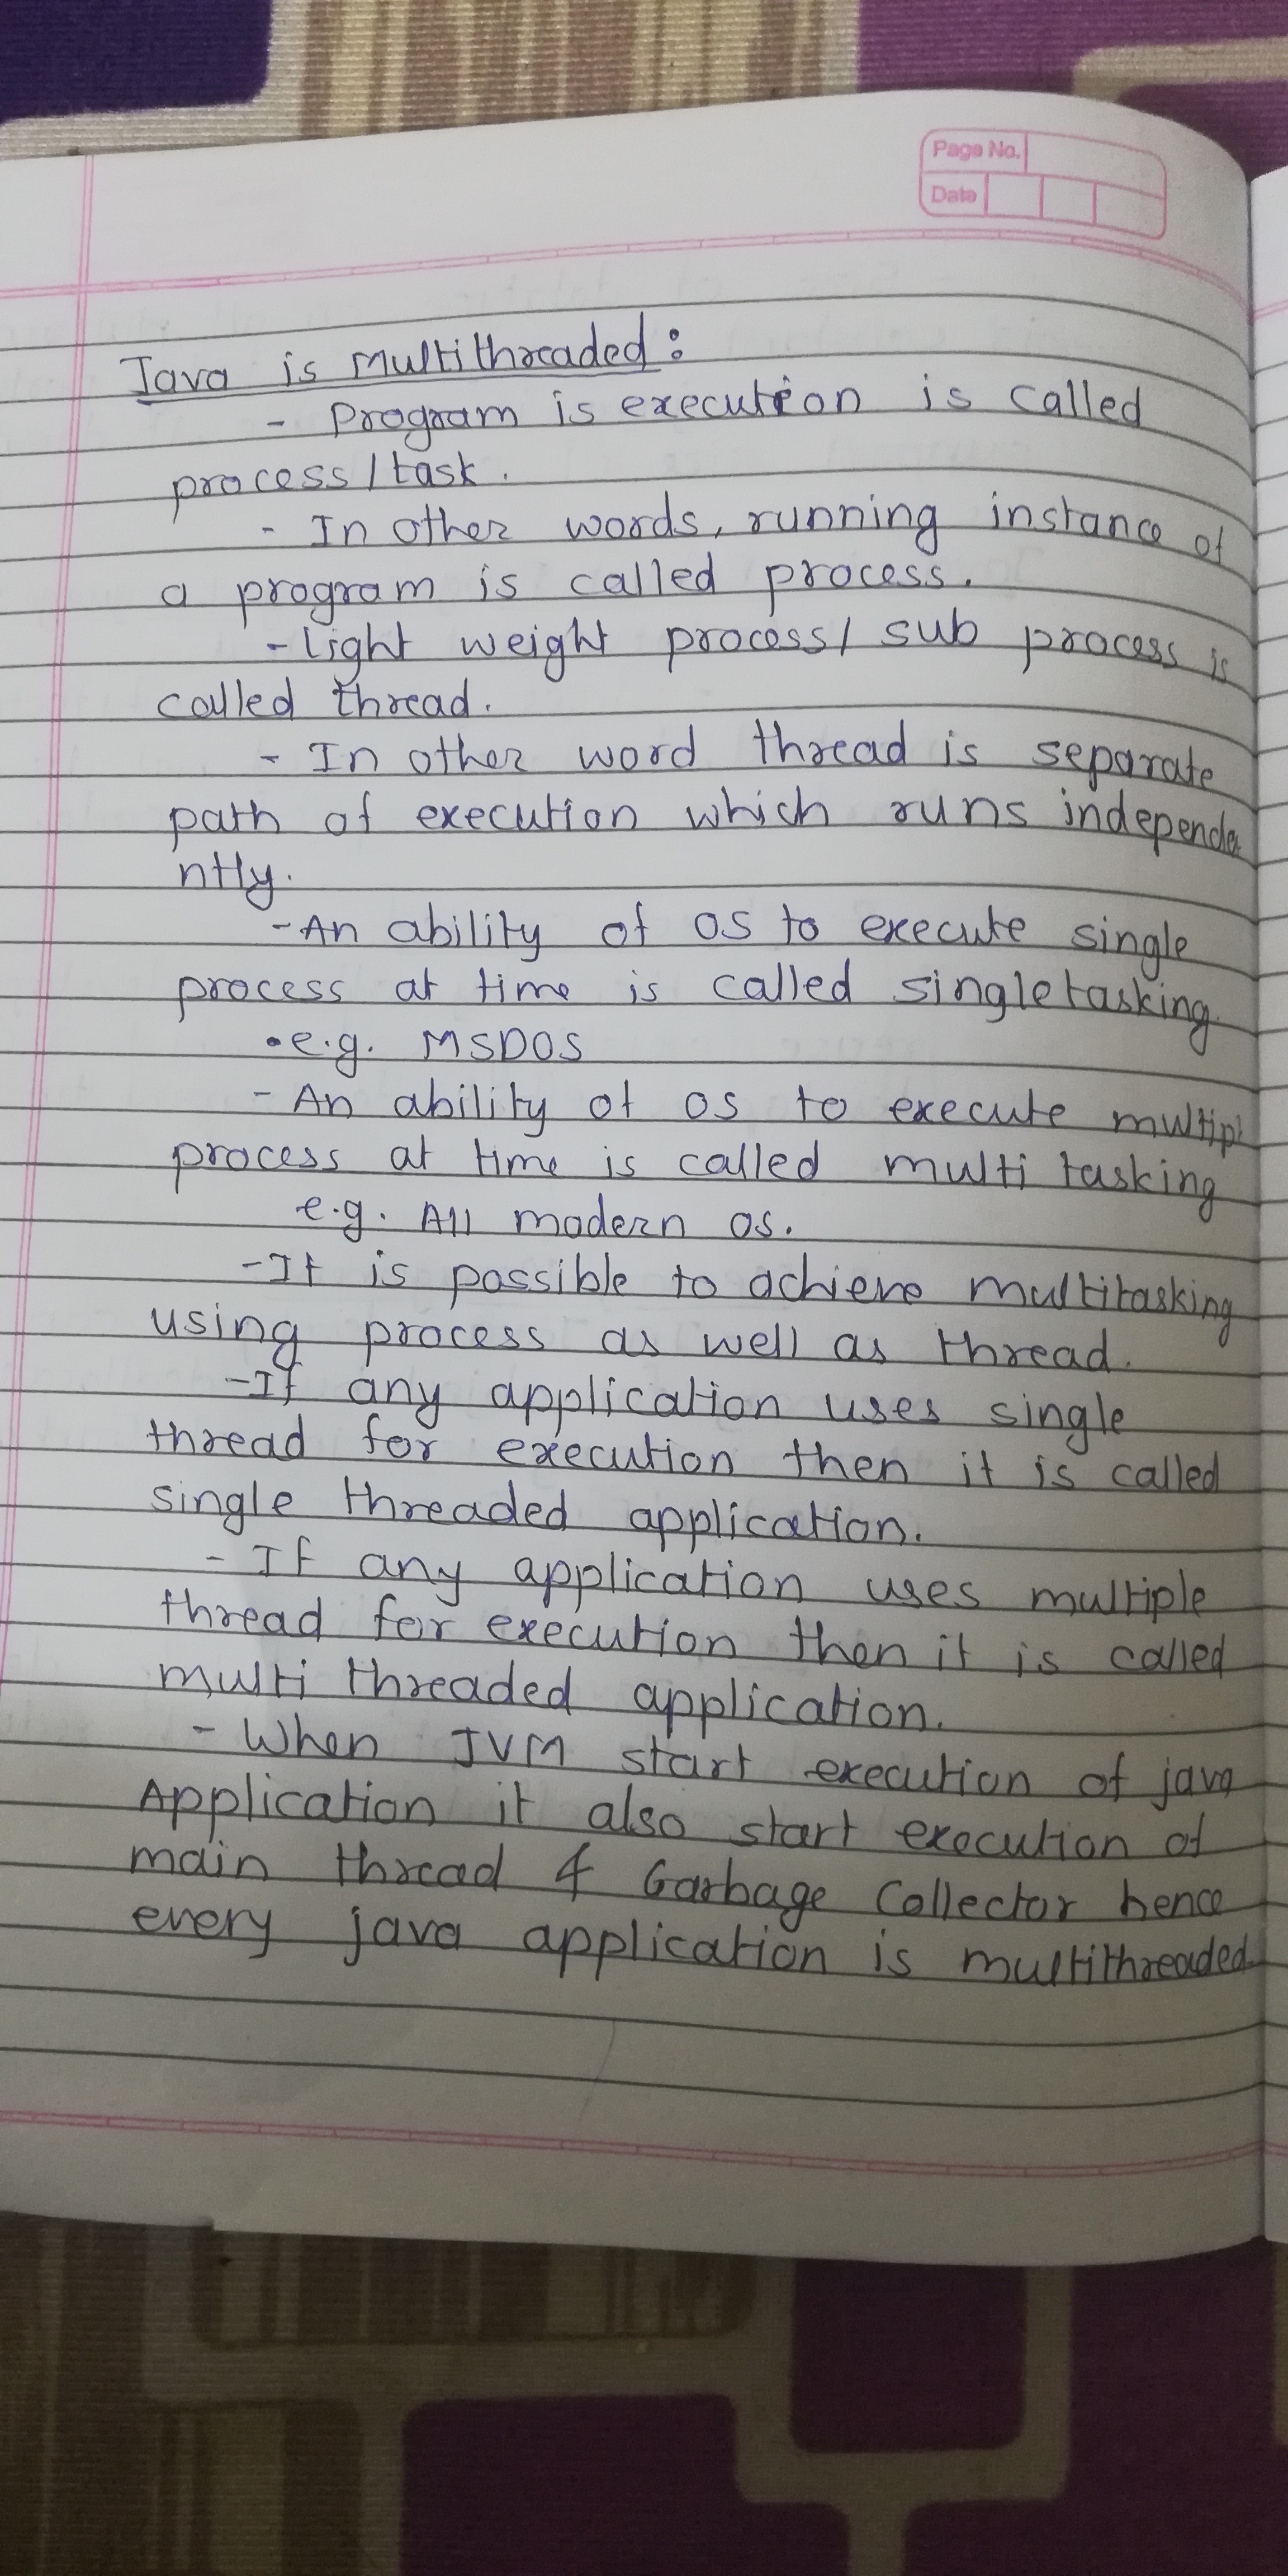 Page No.
Date
Java is Multithreaded :
- Program is execution is called
process/task.
- In other words, running instance of
a program is called process.
- light weight process/ sub process is
called thread.
- In other word thread is separate
path of execution which runs independe
ntly.
- An ability of OS to execute single
process at time is called singletasking.
• e.g. MSDOS
- An ability of OS to execute multipl
process at time is called multi tasking
e.g. All modern os.
- It is possible to achieve multitasking
using process as well as thread.
- If any application uses single
thread for execution then it is called
single threaded application.
- If any application uses multiple
thread for execution then it is called
multi threaded application.
- When JVM start execution of java
Application it also start execution of
main thread & Garbage Collector hence
every java application is multithreaded.